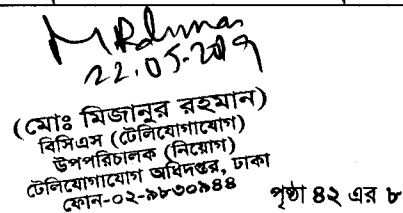 MRahman
22.05.2019
(মোঃ মিজানুর রহমান)
বিসিএস (টেলিযোগাযোগ)
উপপরিচালক (নিয়োগ)
টেলিযোগাযোগ অধিদপ্তর, ঢাকা
ফোন-০২-৯৮৩০৯৪৪
পৃষ্ঠা ৪২ এর ৮